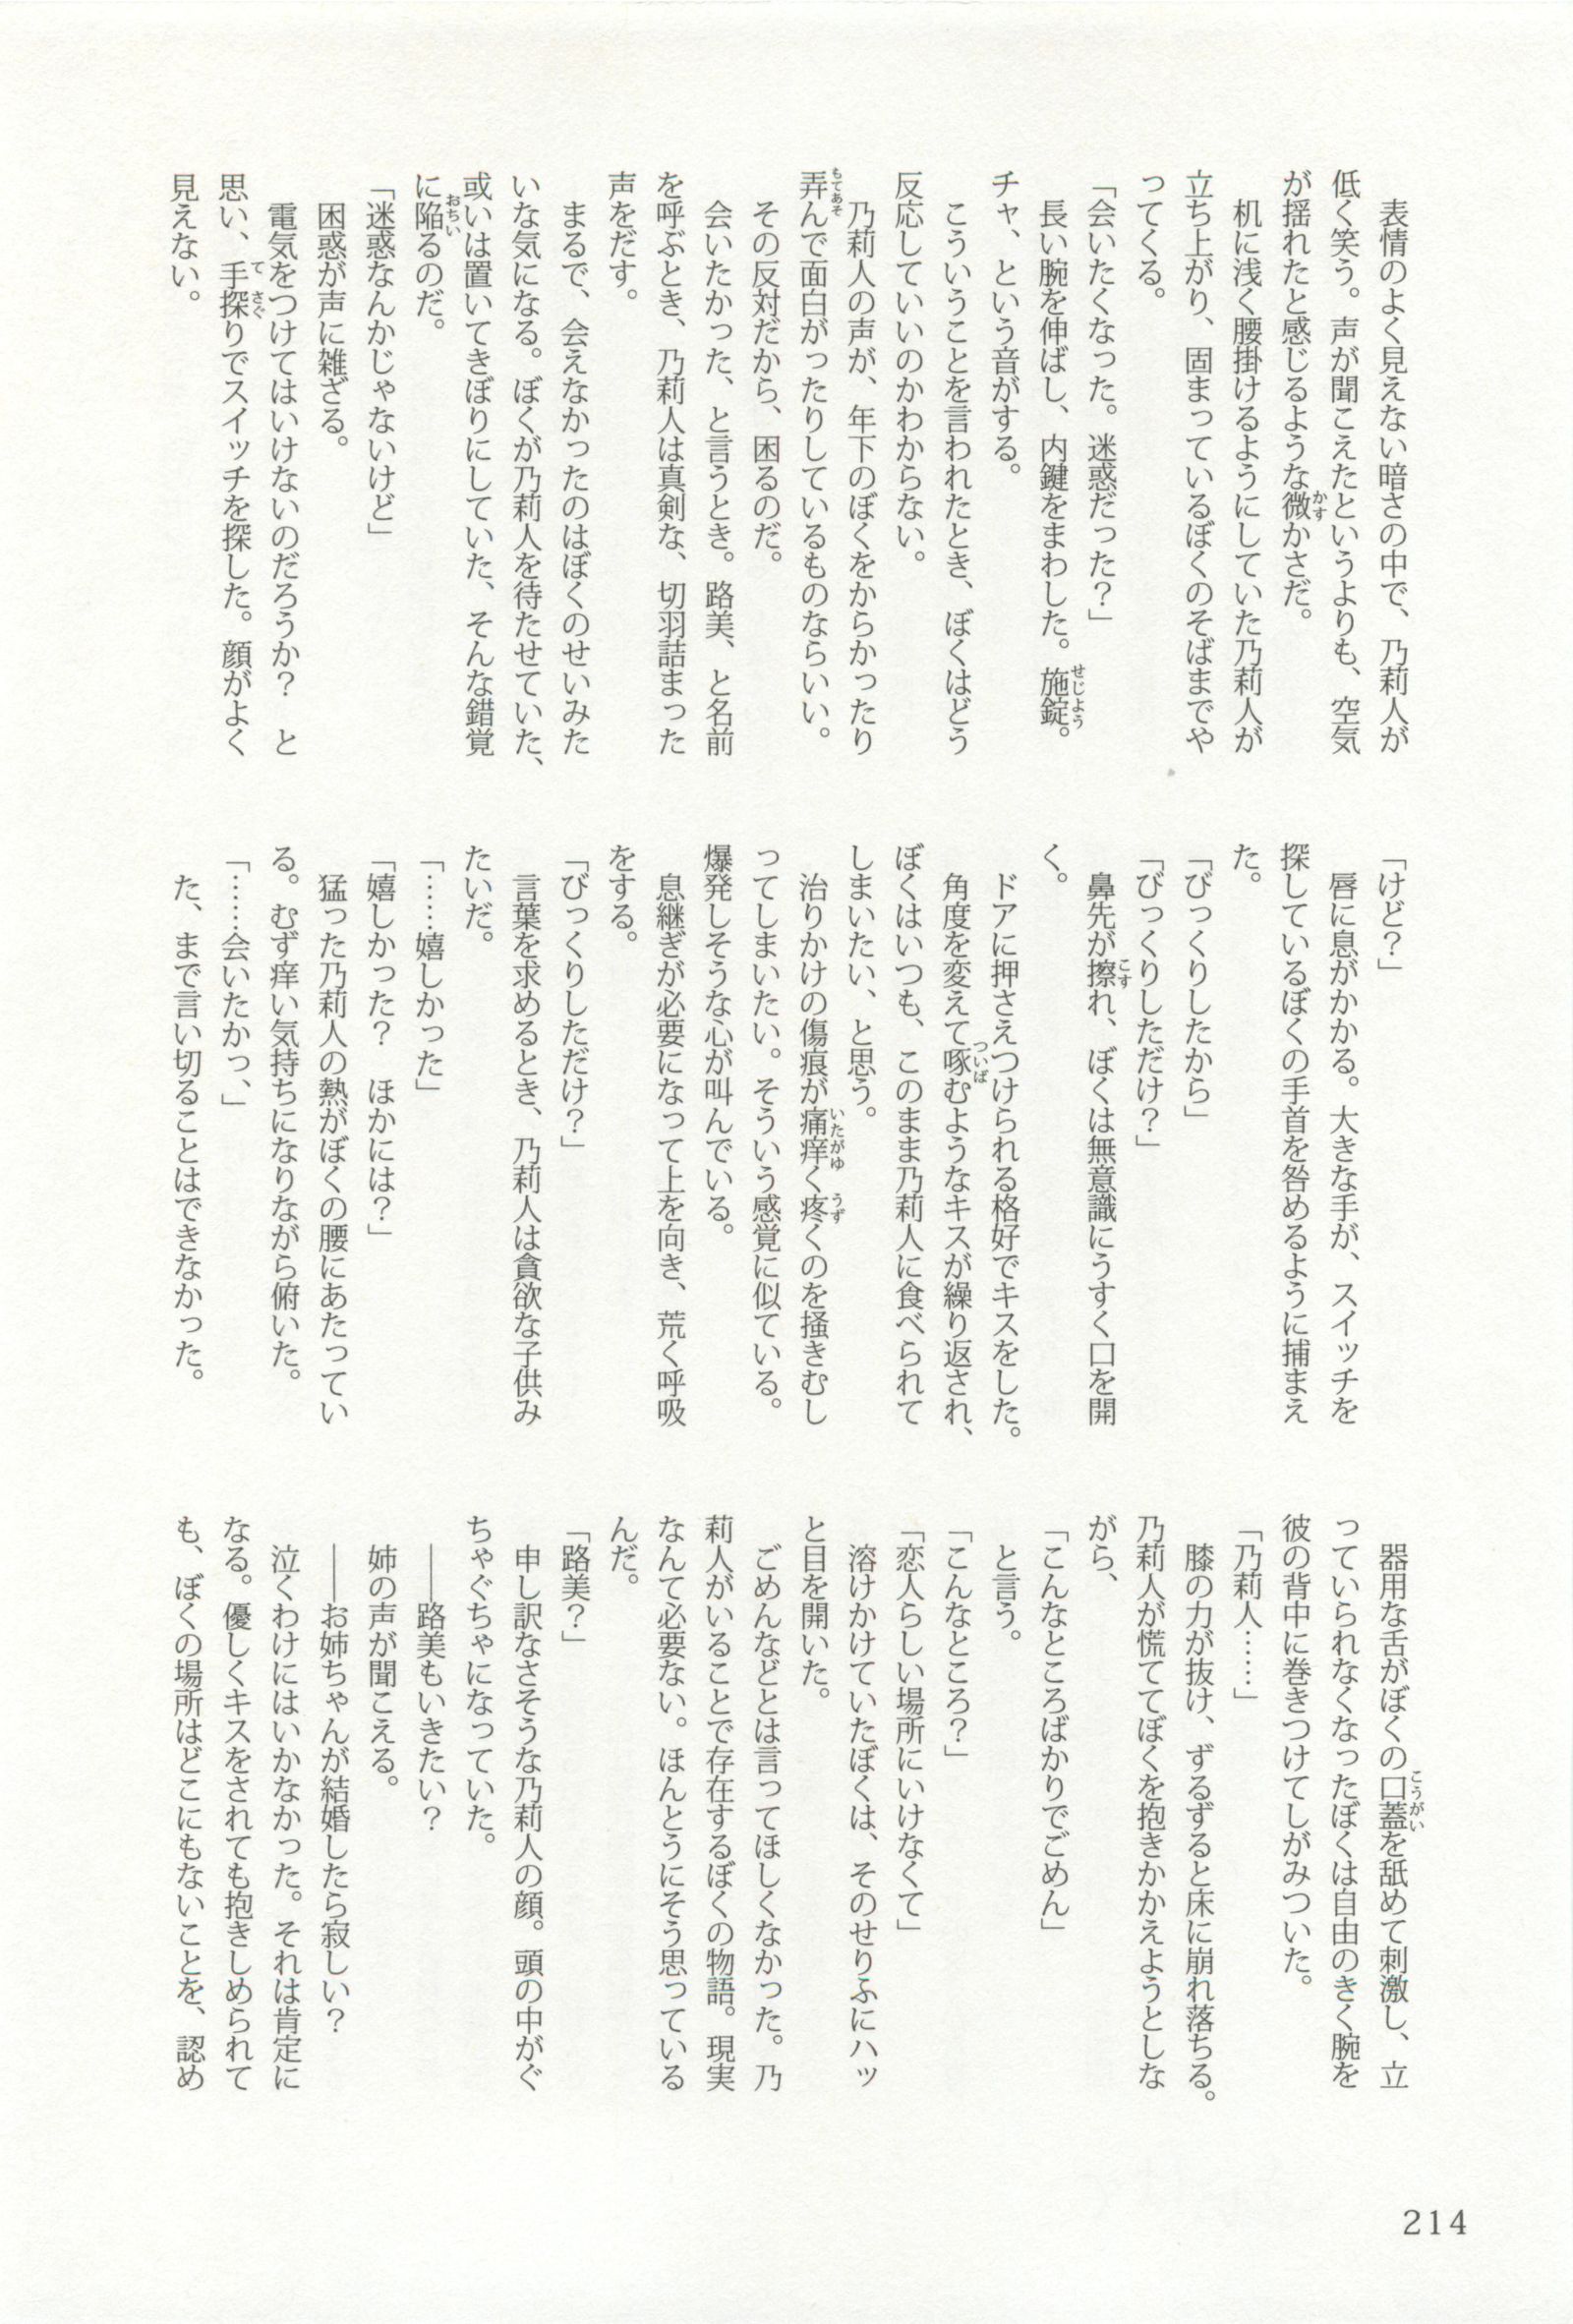 表情のよく見えない暗さの中で、乃莉人が
低く笑う。声が聞こえたというよりも、空気
が揺れたと感じるような微かさだ。
机に浅く腰掛けるようにしていた乃莉人が
立ち上がり、固まっているぼくのそばまでや
ってくる。
「会いたくなった。迷惑だった?」
長い腕を伸ばし、内鍵をまわした。施錠。
チャ、という音がする。
こういうことを言われたとき、ぼくはどう
反応していいのかわからない。
乃莉人の声が、年下のぼくをからかったり
弄んで面白がったりしているものならいい。
その反対だから、困るのだ。
会いたかった、と言うとき。路美、と名前
を呼ぶとき、乃莉人は真剣な、切羽詰まった
声をだす。
まるで、会えなかったのはぼくのせいみた
いな気になる。ぼくが乃莉人を待たせていた、
或いは置いてきぼりにしていた、そんな錯覚
に陥るのだ。
「迷惑なんかじゃないけど」
困惑が声に雑ざる。
電気をつけてはいけないのだろうか? と
思い、手探りでスイッチを探した。顔がよく
見えない。
「けど?」
唇に息がかかる。大きな手が、スイッチを
探しているぼくの手首を咎めるように捕まえ
た。
「びっくりしたから」
「びっくりしただけ?」
鼻先が擦れ、ぼくは無意識にうすく口を開
く。
ドアに押さえつけられる格好でキスをした。
角度を変えて啄むようなキスが繰り返され、
ぼくはいつも、このまま乃莉人に食べられて
しまいたい、と思う。
治りかけの傷痕が痛痒く疼くのを掻きむし
ってしまいたい。そういう感覚に似ている。
爆発しそうな心が叫んでいる。
息継ぎが必要になって上を向き、荒く呼吸
をする。
「びっくりしただけ?」
言葉を求めるとき、乃莉人は貪欲な子供み
たいだ。
「……嬉しかった」
「嬉しかった? ほかには?」
猛った乃莉人の熱がぼくの腰にあたってい
る。むず痒い気持ちになりながら俯いた。
「……会いたかっ、」
た、まで言い切ることはできなかった。
器用な舌がぼくの口蓋を舐めて刺激し、立
っていられなくなったぼくは自由のきく腕を
彼の背中に巻きつけてしがみついた。
「乃莉人……」
膝の力が抜け、ずるずると床に崩れ落ちる。
乃莉人が慌ててぼくを抱きかかえようとしな
がら、
「こんなところばかりでごめん」
と言う。
「こんなところ?」
「恋人らしい場所にいけなくて」
溶けかけていたぼくは、そのせりふにハッ
と目を開いた。
ごめんなどとは言ってほしくなかった。乃
莉人がいることで存在するぼくの物語。現実
なんて必要ない。ほんとうにそう思っている
んだ。
「路美?」
申し訳なさそうな乃莉人の顔。頭の中がぐ
ちゃぐちゃになっていた。
――路美もいきたい?
姉の声が聞こえる。
――お姉ちゃんが結婚したら寂しい?
泣くわけにはいかなかった。それは肯定に
なる。優しくキスをされても抱きしめられて
も、ぼくの場所はどこにもないことを、認め
214